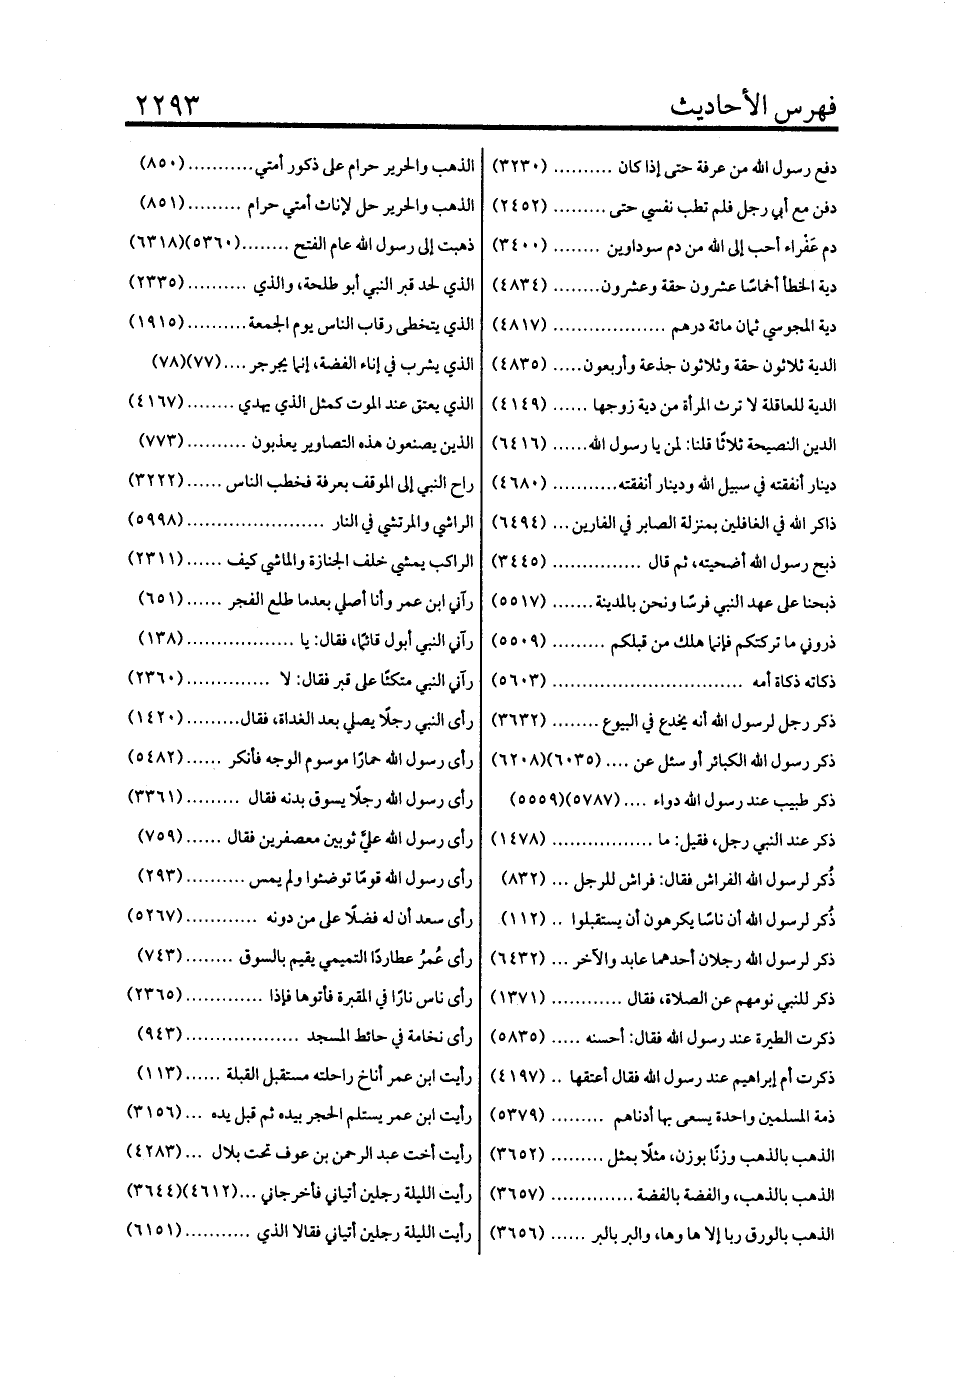 فهرس الأحاديث ٢٢٩٣
دفع رسول الله من عرفة حتى إذا كان .......... (٣٢٣٠)
دفن مع أبي رجل فلم تطب نفسي حتى ......... (٢٤٥٢)
دم عَفْراء أحب إلى الله من دم سوداوين ........ (٣٤٠٠)
دية الخطأ أخماسًا عشرون حقة وعشرون........ (٤٨٣٤)
دية المجوسي ثمان مائة درهم ................... (٤٨١٧)
الدية ثلاثون حقة وثلاثون جذعة وأربعون..... (٤٨٣٥)
الدية للعاقلة لا ترث المرأة من دية زوجها ...... (٤١٤٩)
الدين النصيحة ثلاثًا قلنا: لمن يا رسول الله...... (٦٤١٦)
دينار أنفقته في سبيل الله ودينار أنفقته........... (٤٦٨٠)
ذاكر الله في الغافلين بمنزلة الصابر في الفارين ... (٦٤٩٤)
ذبح رسول الله أضحيته، ثم قال ............... (٣٤٤٥)
ذبحنا على عهد النبي فرسًا ونحن بالمدينة....... (٥٥١٧)
ذروني ما تركتكم فإنما هلك من قبلكم ......... (٥٥٠٩)
ذكاته ذكاة أمه ................................ (٥٦٠٣)
ذكر رجل لرسول الله أنه يخدع في البيوع ........ (٣٦٣٢)
ذكر رسول الله الكبائر أو سئل عن .... (٦٠٣٥)(٦٢٠٨)
ذكر طبيب عند رسول الله دواء .... (٥٧٨٧)(٥٥٥٩)
ذكر عند النبي رجل، فقيل: ما ................. (١٤٧٨)
ذُكر لرسول الله الفراش فقال: فراش للرجل ... (٨٣٢)
ذُكر لرسول الله أن ناسًا يكرهون أن يستقبلوا .. (١١٢)
ذكر لرسول الله رجلان أحدهما عابد والآخر ... (٦٤٣٢)
ذكر للنبي نومهم عن الصلاة، فقال ............ (١٣٧١)
ذكرت الطيرة عند رسول الله فقال: أحسنه ..... (٥٨٣٥)
ذكرت أم إبراهيم عند رسول الله فقال أعتقها .. (٤١٩٧)
ذمة المسلمين واحدة يسعى بها أدناهم ......... (٥٣٧٩)
الذهب بالذهب وزنًا بوزن، مثلًا بمثل ......... (٣٦٥٢)
الذهب بالذهب، والفضة بالفضة .............. (٣٦٥٧)
الذهب بالورق ربا إلا ها وها، والبر بالبر ...... (٣٦٥٦)
الذهب والحرير حرام على ذكور أمتي........... (٨٥٠)
الذهب والحرير حل لإناث أمتي حرام ......... (٨٥١)
ذهبت إلى رسول الله عام الفتح ........(٥٣٦٠)(٦٣١٨)
الذي لحد قبر النبي أبو طلحة، والذي .......... (٢٣٣٥)
الذي يتخطى رقاب الناس يوم الجمعة.......... (١٩١٥)
الذي يشرب في إناء الفضة، إنما يجرجر .... (٧٧)(٧٨)
الذي يعتق عند الموت كمثل الذي يهدي ........ (٤١٦٧)
الذين يصنعون هذه التصاوير يعذبون .......... (٧٧٣)
راح النبي إلى الموقف بعرفة فخطب الناس ...... (٣٢٢٢)
الراشي والمرتشي في النار ....................... (٥٩٩٨)
الراكب يمشي خلف الجنازة والماشي كيف ...... (٢٣١١)
رآني ابن عمر وأنا أصلي بعدما طلع الفجر ...... (٦٥١)
رآني النبي أبول قائمًا، فقال: يا .................. (١٣٨)
رآني النبي متكئًا على قبر فقال: لا .............. (٢٣٦٠)
رأى النبي رجلًا يصلي بعد الغداة، فقال......... (١٤٢٠)
رأى رسول الله حمارًا موسوم الوجه فأنكر ...... (٥٤٨٢)
رأى رسول الله رجلًا يسوق بدنه فقال ......... (٣٣٦١)
رأى رسول الله عليَّ ثوبين معصفرين فقال ...... (٧٥٩)
رأى رسول الله قومًا توضئوا ولم يمس .......... (٢٩٣)
رأى سعد أن له فضلًا على من دونه ............ (٥٢٦٧)
رأى عُمرُ عطاردًا التميمي يقيم بالسوق ........ (٧٤٣)
رأى ناس نارًا في المقبرة فأتوها فإذا ............. (٢٣٦٥)
رأى نخامة في حائط المسجد ................... (٩٤٣)
رأيت ابن عمر أناخ راحلته مستقبل القبلة ...... (١١٣)
رأيت ابن عمر يستلم الحجر بيده ثم قبل يده ... (٣١٥٦)
رأيت أخت عبد الرحمن بن عوف تحت بلال ... (٤٢٨٣)
رأيت الليلة رجلين أتياني فأخرجاني ...(٤٦١٢)(٣٦٤٤)
رأيت الليلة رجلين أتياني فقالا الذي ........... (٦١٥١)